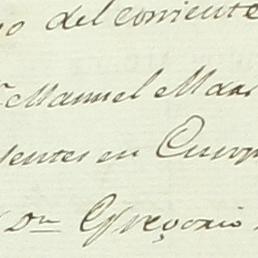 o del corriente
Manuel Mar
sentes en Cuerp
Dn Gregorio